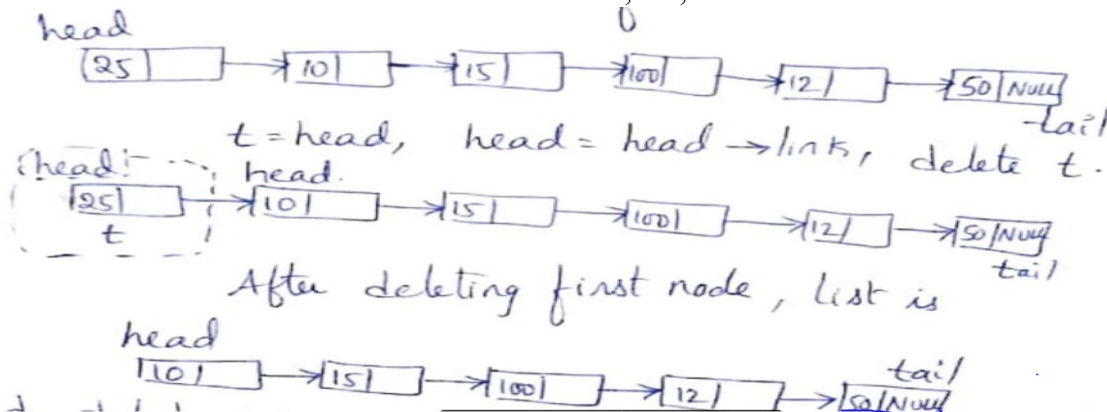 head
25 10 15 100 12 50 NULL
tail
t = head, head = head → link, delete t.
head head.
25 10 15 100 12 50 NULL
t
tail
After deleting first node, list is
head
tail
10 15 100 12 50 NULL